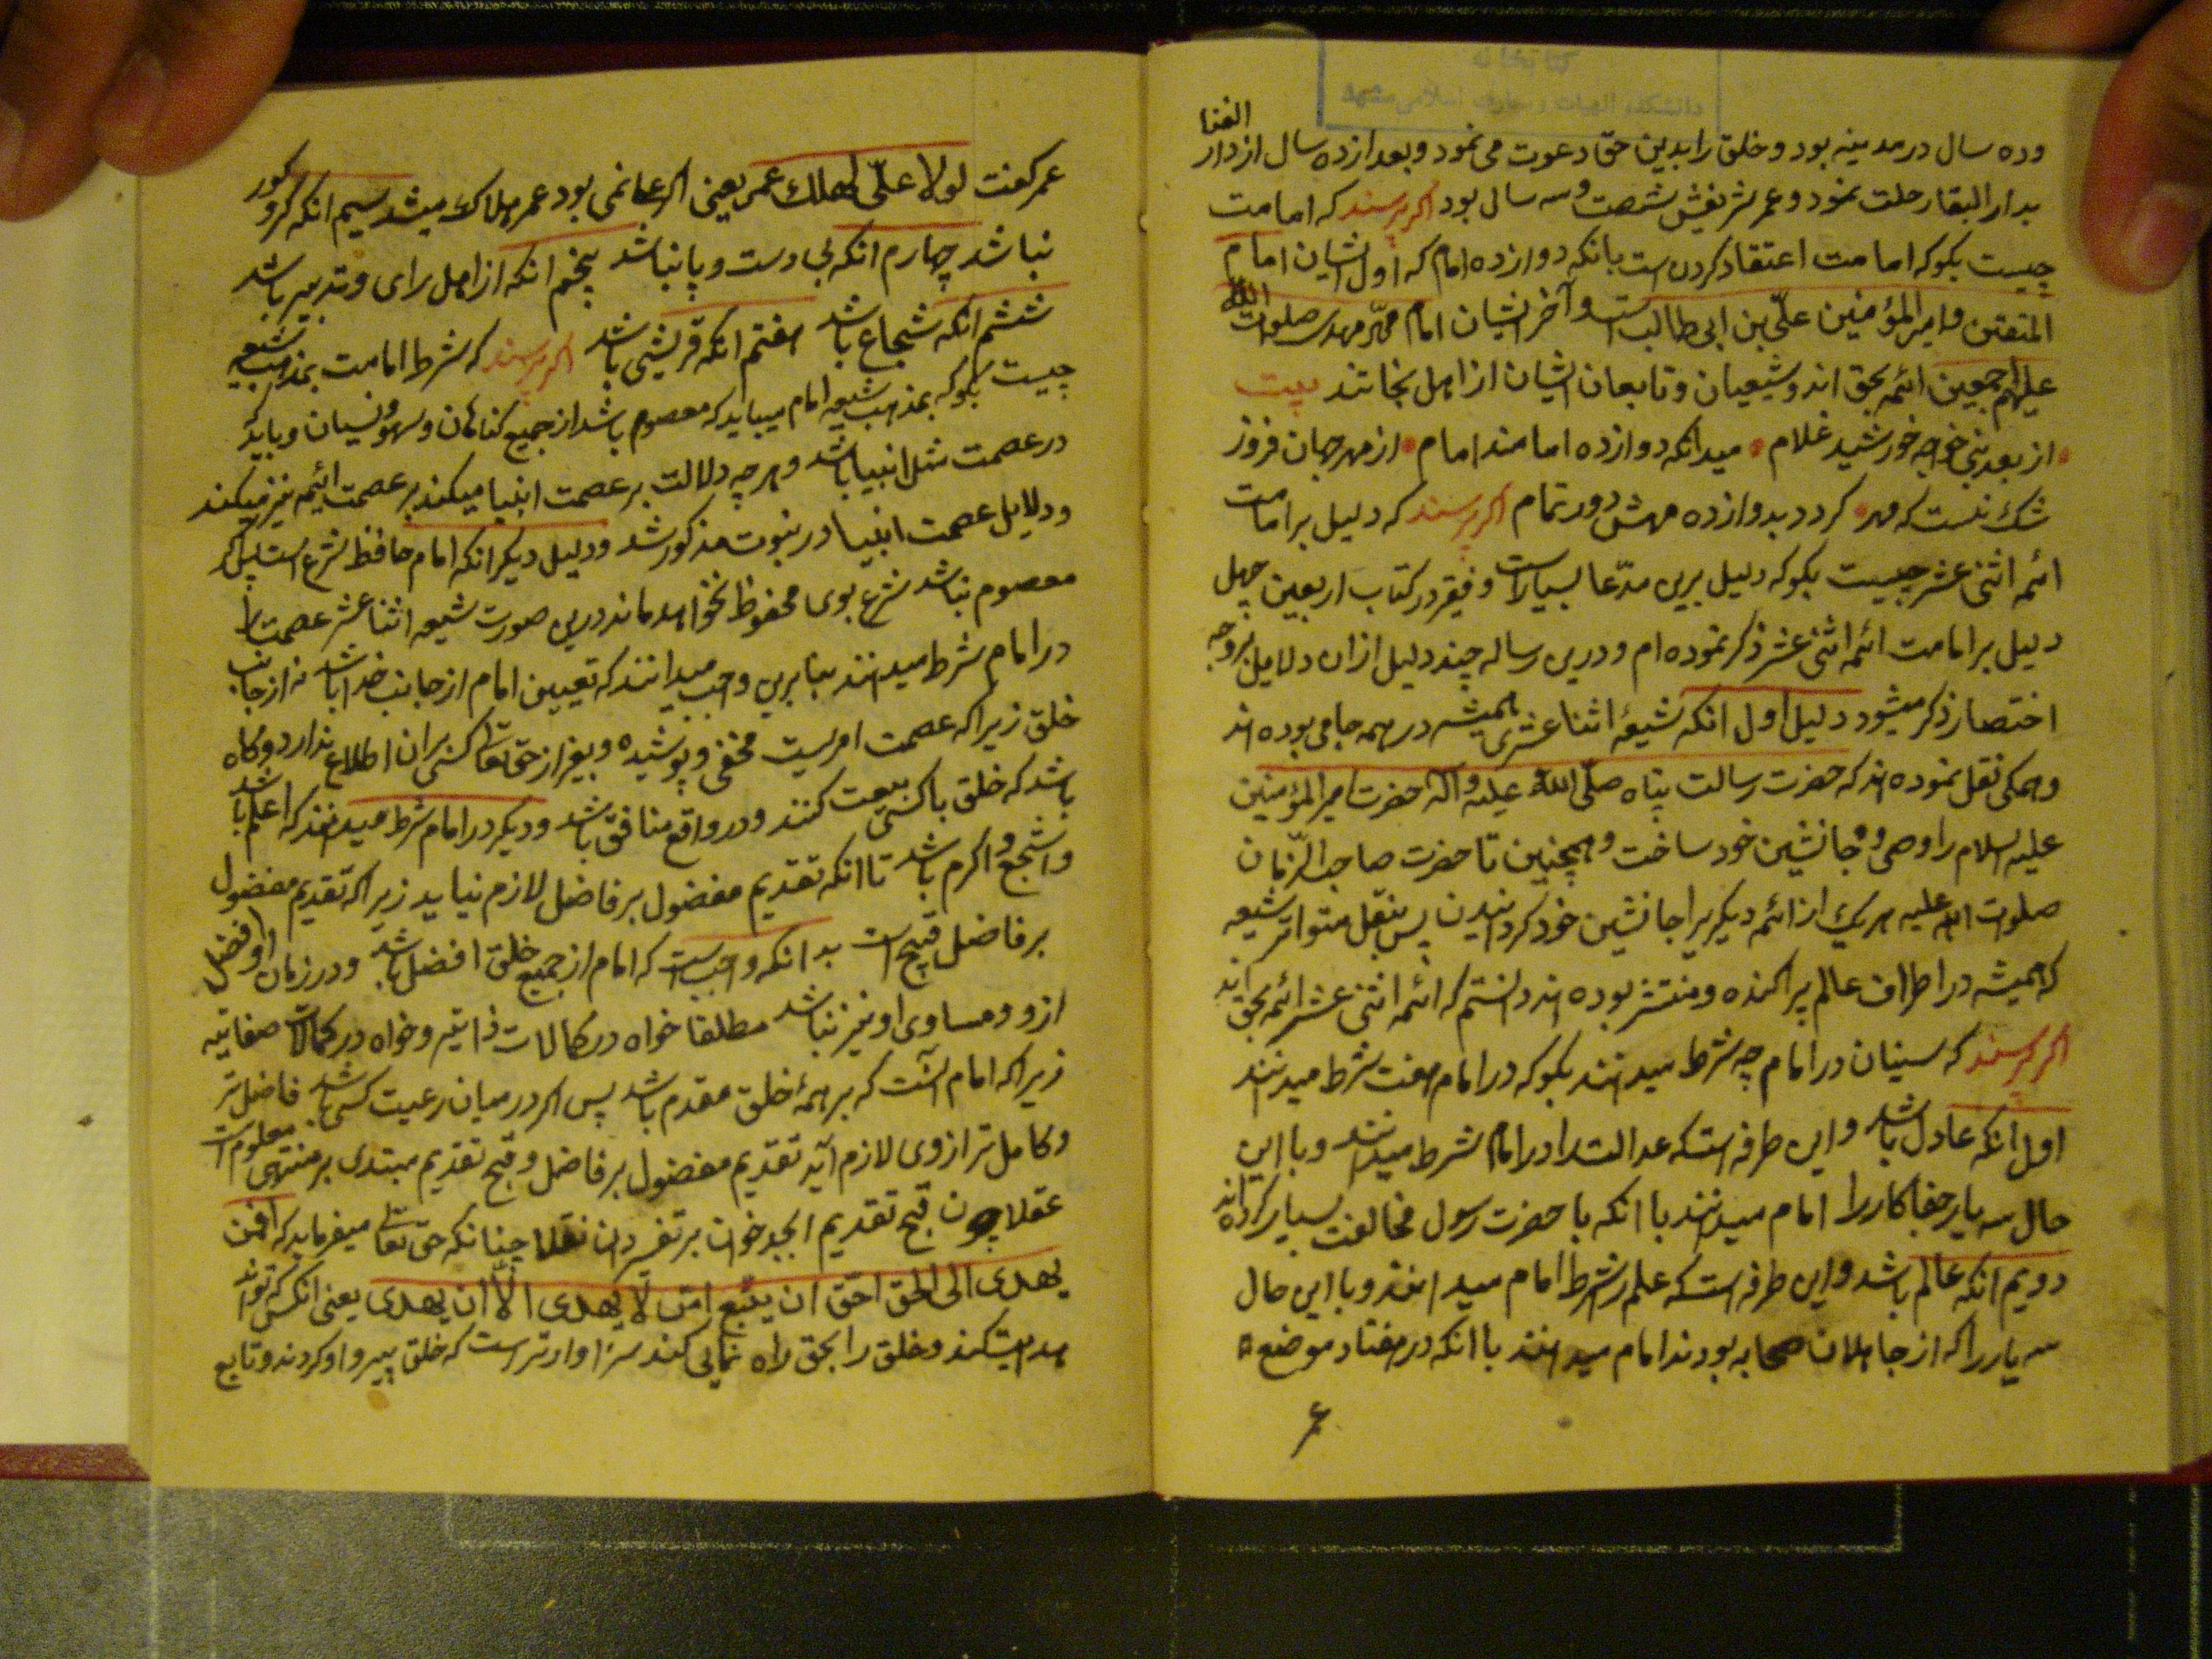 وده سال در مدینه بود و خلق را بدین حق دعوت می نمود و بعد از ده سال از دار الفنا
بدار البقا رحلت نمود و عمر شریفش شصت و سه سال بود اکر پرسند که امامت
چیست بکو که امامت اعتقاد کردن است بانکه دوازده امام که اول ایشان امام
المتقین و امیر المؤمنین علی بن ابی طالب است و آخر ایشان امام محمد مهدی صلوات الله
علیهم اجمعین ائمه بحق اند و شیعیان و تابعان ایشان از اهل نجاتند بیت
از بعد نبی خواجه خورشید غلام میدانکه دوازده امامند امام از مهر جهان فروز
شک نیست که مهر کردد بدوازده مهش دور تمام اکر پرسند که دلیل بر امامت
ائمه اثنی عشر چیست بکو که دلیل برین مدّعا بسیار است و فقیر در کتاب اربعین چهل
دلیل بر امامت ائمه اثنی عشر ذکر نموده ام و درین رساله چند دلیل ازان دلایل بر وجه
اختصار ذکر میشود دلیل اول انکه شیعهٔ اثنا عشری همیشه در همه جا می بوده اند
وهمکی نقل نموده اند که حضرت رسالت پناه صلّی الله علیه و آله حضرت امیر المؤمنین
علیه السلام را وصی و جانشین خود ساخت و همچنین تا حضرت صاحب الزّمان
صلوات الله علیه هر یک از ائمه دیکریرا جانشین خود کردانیدن پس بنقل متواتر شیعه
که همیشه در اطراف عالم پراکنده و منتشر بوده اند دانستیم که ائمه اثنی عشر ائمه بحق اند
اکر پرسند که سنیان در امام چه شرط میدانند بکو که در امام هفت شرط میدانند
اول انکه عادل باشد و این طرفه است که عدالت را در امام شرط میدانند و با این
حال سه یار جفا کار را امام میدانند با انکه با حضرت رسول مخالفت بسیار کرده اند
دویم انکه عالم باشد و این طرفه است که علم را شرط امام میدانند و با این حال
سه یار را که از جاهلان صحابه بودند امام میدانند با انکه در هفتاد موضع
عمر
عمر کفت لولا علیّ لهلک عمر یعنی اکر علی نمی بود عمر هلاک میشد سیم انکه کر و کور
نباشد چهارم انکه بی دست و پا نباشد پنجم انکه از اهل رای و تدبیر باشد
ششم انکه شجاع باشد هفتم انکه قریشی باشد اکر پرسند که شرط امامت بمذهب شیعه
چیست بکو که بمذهب شیعه امام میباید که معصوم باشد از جمیع کناهان و سهو و نسیان و باید که
در عصمت مثل انبیا باشد و هر چه دلالت بر عصمت انبیا میکند بر عصمت ائمه نیز میکند
و دلایل عصمت انبیا در نبوت مذکور شد و دلیل دیکر انکه امام حافظ شرع است پس اکر
معصوم نباشد شرع بوی محفوظ نخواهد ماند درین صورت شیعه اثنا عشر عصمت را
در امام شرط میدانند بنا برین واجب میدانند که تعیین امام از جانب خدا باشد نه از جانب
خلق زیرا که عصمت امریست مخفی و پوشیده و بغیر از حق تعالی کسی بران اطلاع ندارد و کاه
باشد که خلق با کسی بیعت کنند و در واقع منافق باشد و دیکر در امام شرط میدانند که اعلم باشد
و اشجع و اکرم باشد تا انکه تقدیم مفضول بر فاضل لازم نیاید زیرا که تقدیم مفضول
بر فاضل قبیح است بدانکه واجب است که امام از جمیع خلق افضل باشد و در زمان او افضل
ازو و مساوی او نیز نباشد مطلقا خواه در کمالات ذاتیه و خواه در کمالات صفاتیه
زیرا که امام آنست که بر همهٔ خلق مقدم باشد پس اکر در میان رعیت کسی باشد فاضل تر
و کامل تر از وی لازم آید تقدیم مفضول بر فاضل و قبح تقدیم مبتدی بر منتهی معلوم است
عقلا چون قبح تقدیم ابجد خوان بر تفسیر دان نقلا چنانکه حق تعالی میفرماید که افمن
یهدی الی الحق احق ان یتّبع امّن لا یهدی الّا ان یهدی یعنی انکسی که تواند
هدایت کند و خلق را بحق راه نمایی کند سزاوارتر است که خلق پیرو او کردند و تابع